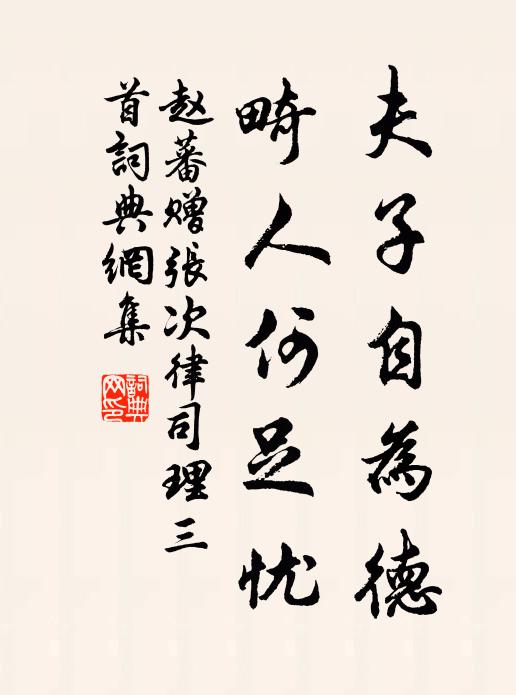 夫子自為德
畸人何足忧
赵蕃赠張次律司理三
首詞典網集
詞典网印